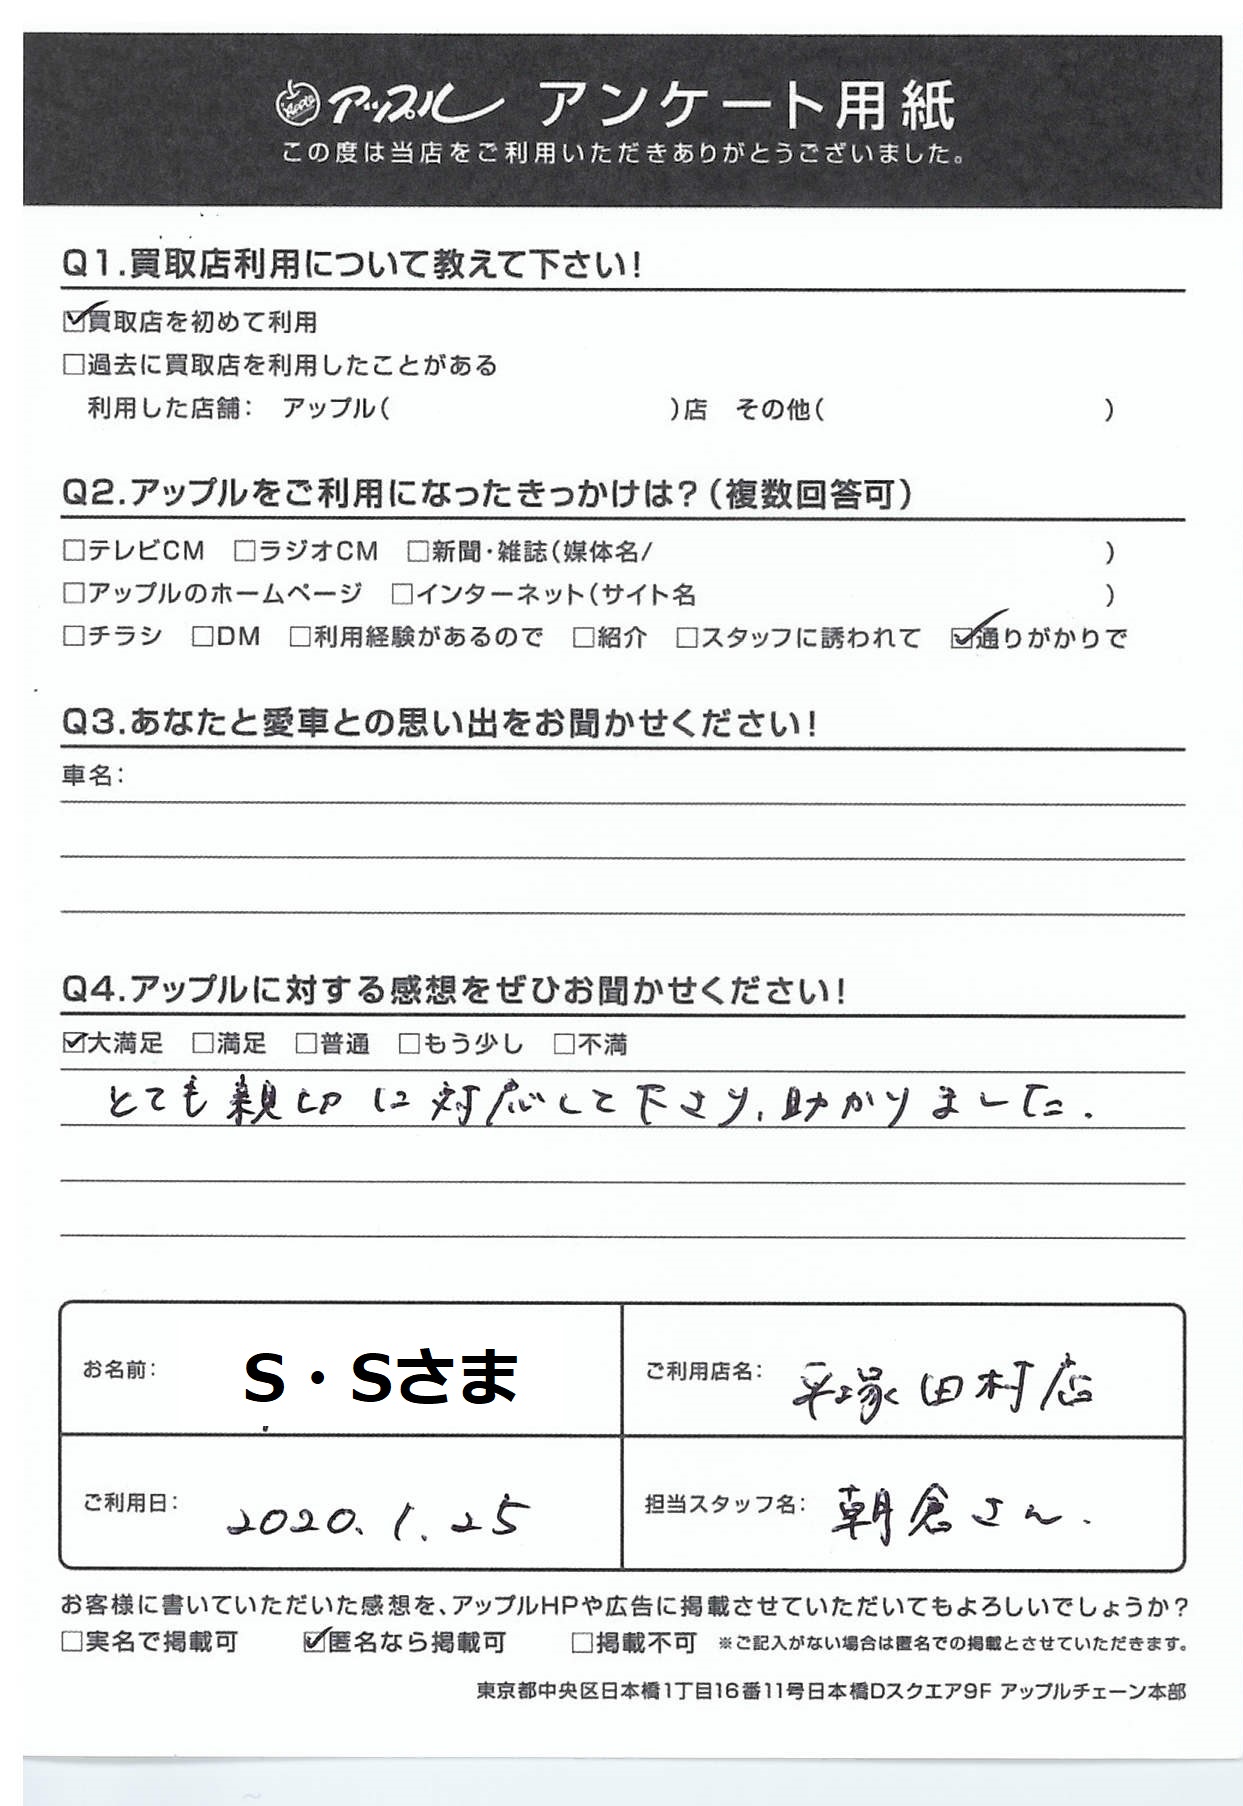 Apple アップル アンケート用紙
この度は当店をご利用いただきありがとうございました。
Q1.買取店利用について教えて下さい!
☑買取店を初めて利用
□過去に買取店を利用したことがある
利用した店舗: アップル( )店 その他( )
Q2.アップルをご利用になったきっかけは?(複数回答可)
□テレビCM □ラジオCM □新聞・雑誌(媒体名/ )
□アップルのホームページ □インターネット(サイト名 )
□チラシ □DM □利用経験があるので □紹介 □スタッフに誘われて ☑通りがかりで
Q3.あなたと愛車との思い出をお聞かせください!
車名:
Q4.アップルに対する感想をぜひお聞かせください!
☑大満足 □満足 □普通 □もう少し □不満
とても親切に対応して下さり、助かりました.
お名前: S・Sさま ご利用店名: 平塚田村店
ご利用日: 2020.1.25 担当スタッフ名: 朝倉さん.
お客様に書いていただいた感想を、アップルHPや広告に掲載させていただいてもよろしいでしょうか?
□実名で掲載可 ☑匿名なら掲載可 □掲載不可 ※ご記入がない場合は匿名での掲載とさせていただきます。
東京都中央区日本橋1丁目16番11号日本橋Dスクエア9F アップルチェーン本部